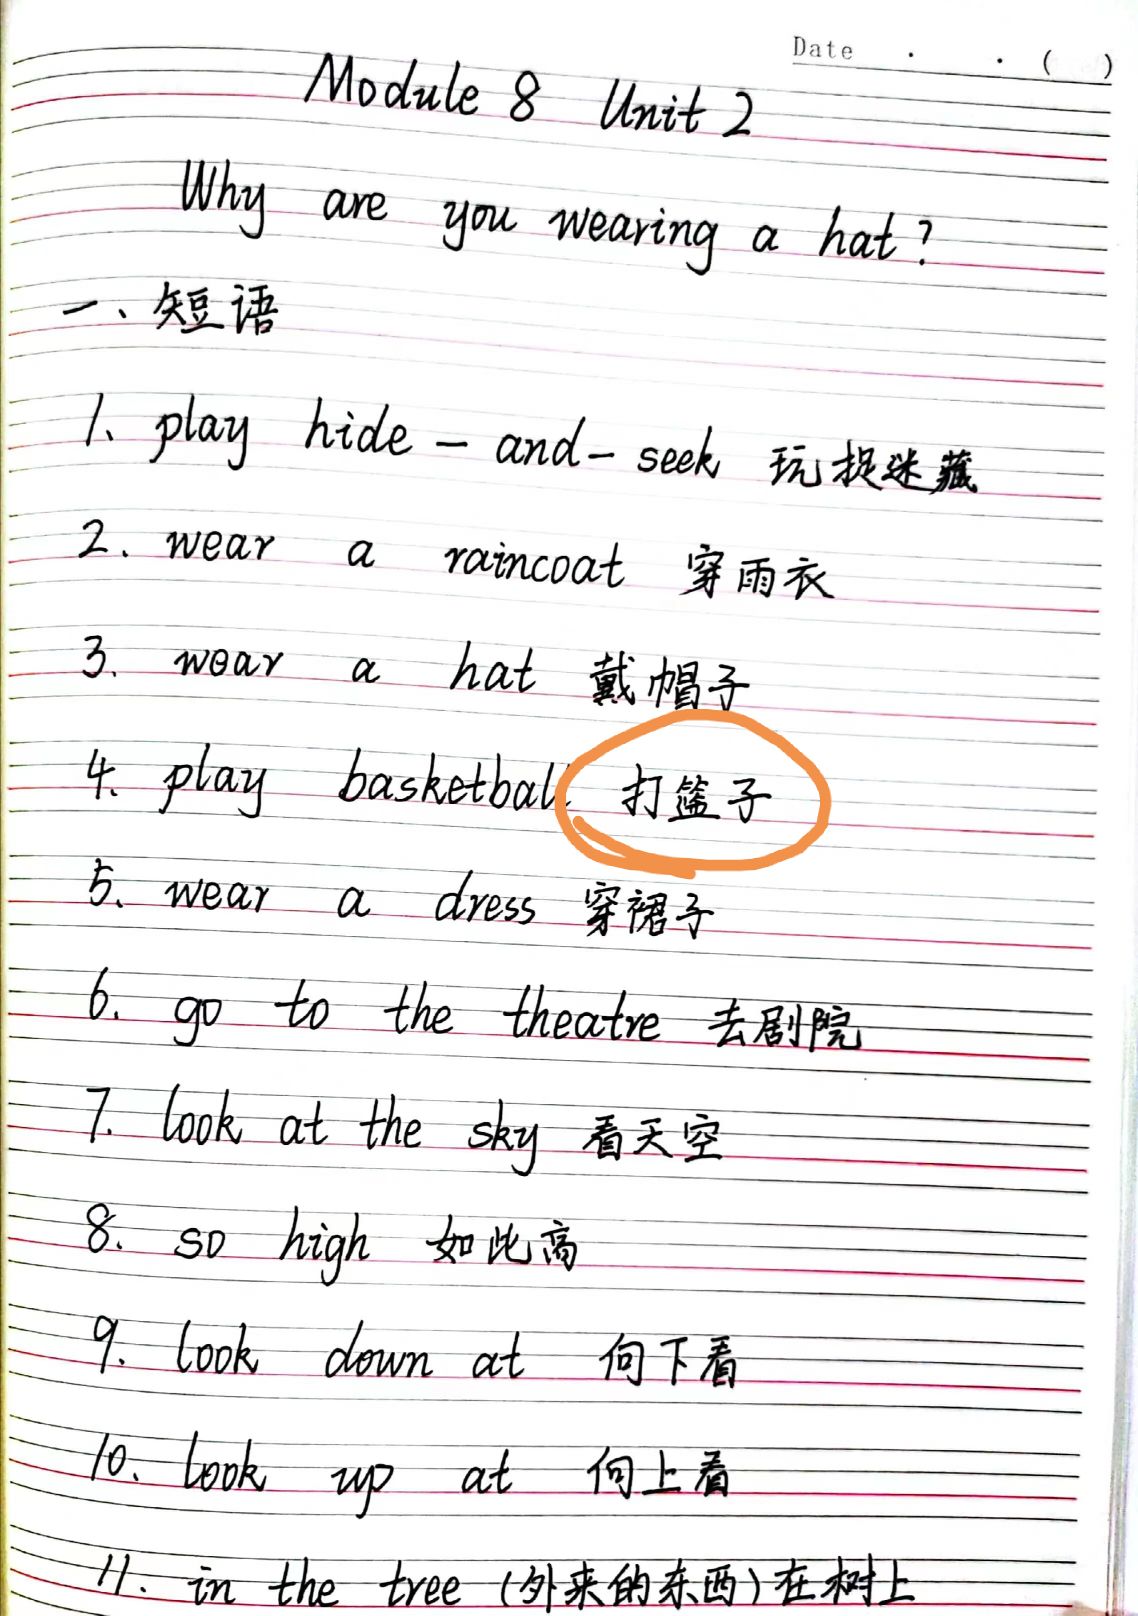 Date . . ( )
Module 8 Unit 2
Why are you wearing a hat?
一、短语
1、play hide-and-seek 玩捉迷藏
2. wear a raincoat 穿雨衣
3. wear a hat 戴帽子
4. play basketball 打篮子
5. wear a dress 穿裙子
6. go to the theatre 去剧院
7. look at the sky 看天空
8. so high 如此高
9. look down at 向下看
10. look up at 向上看
11. in the tree (外来的东西)在树上